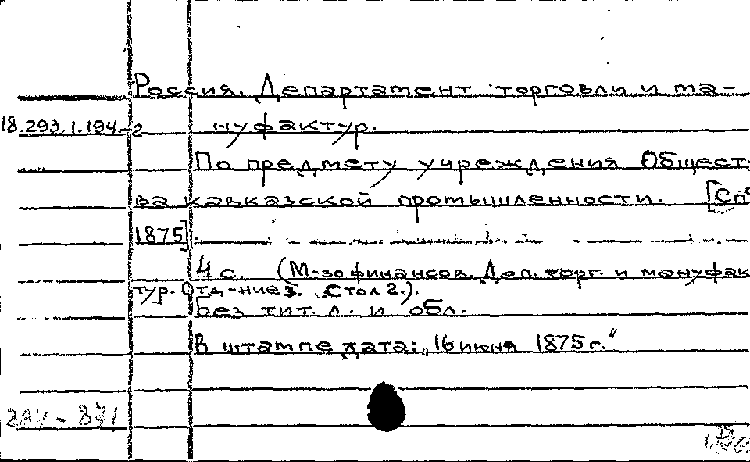 Россия. Департамент торговли и ма-
18.293.1.194-2 нуфактур.
По предмету учреждения Общест-
ва кавказской промышленности. [Сп
1875].
4 с. (М-во финансов. Деп. торг. и мануфак
тур. Отд-ние 3. Стол 2.).
Без тит. л. и обл.
В штампе дата: „16 июня 1875 г."